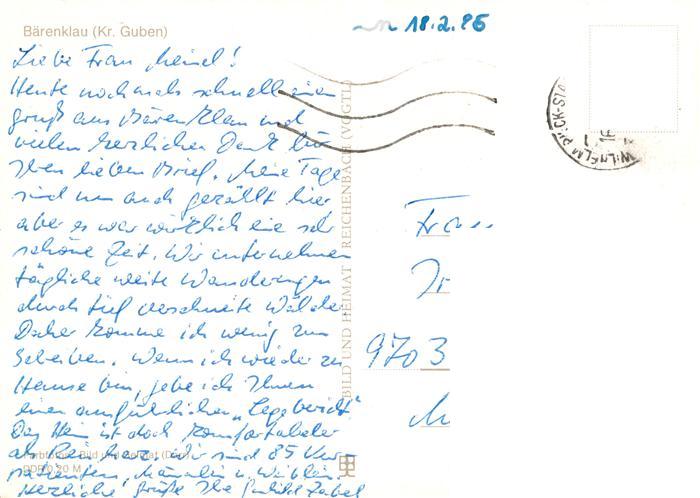 Bärenklau (Kr. Guben)
18.2.86
Liebe Frau
Heute nochmals schnell einen
gruß aus Bärenklau und
vielen herzlichen Dank für
Ihren lieben Brief. Meine Tage
sind nun auch gezählt hier
aber es war wirklich eine sehr
schöne Zeit. Wir unternehmen
tägliche weite Wanderungen
durch tief verschneite Wälder
Daher komme ich wenig zum
Schreiben. Wenn ich wieder zu
Hause bin, gebe ich Ihnen
einen ausführlichen
ist doch komfortabeler
als wir sind 85 Kur-
patienten, Männlein u. Weiblein.
Herzliche grüße Ihe
BILD UND HEIMAT REICHENBACH (VOGTL)
Frau
9703
WILHELM PIECK-STA